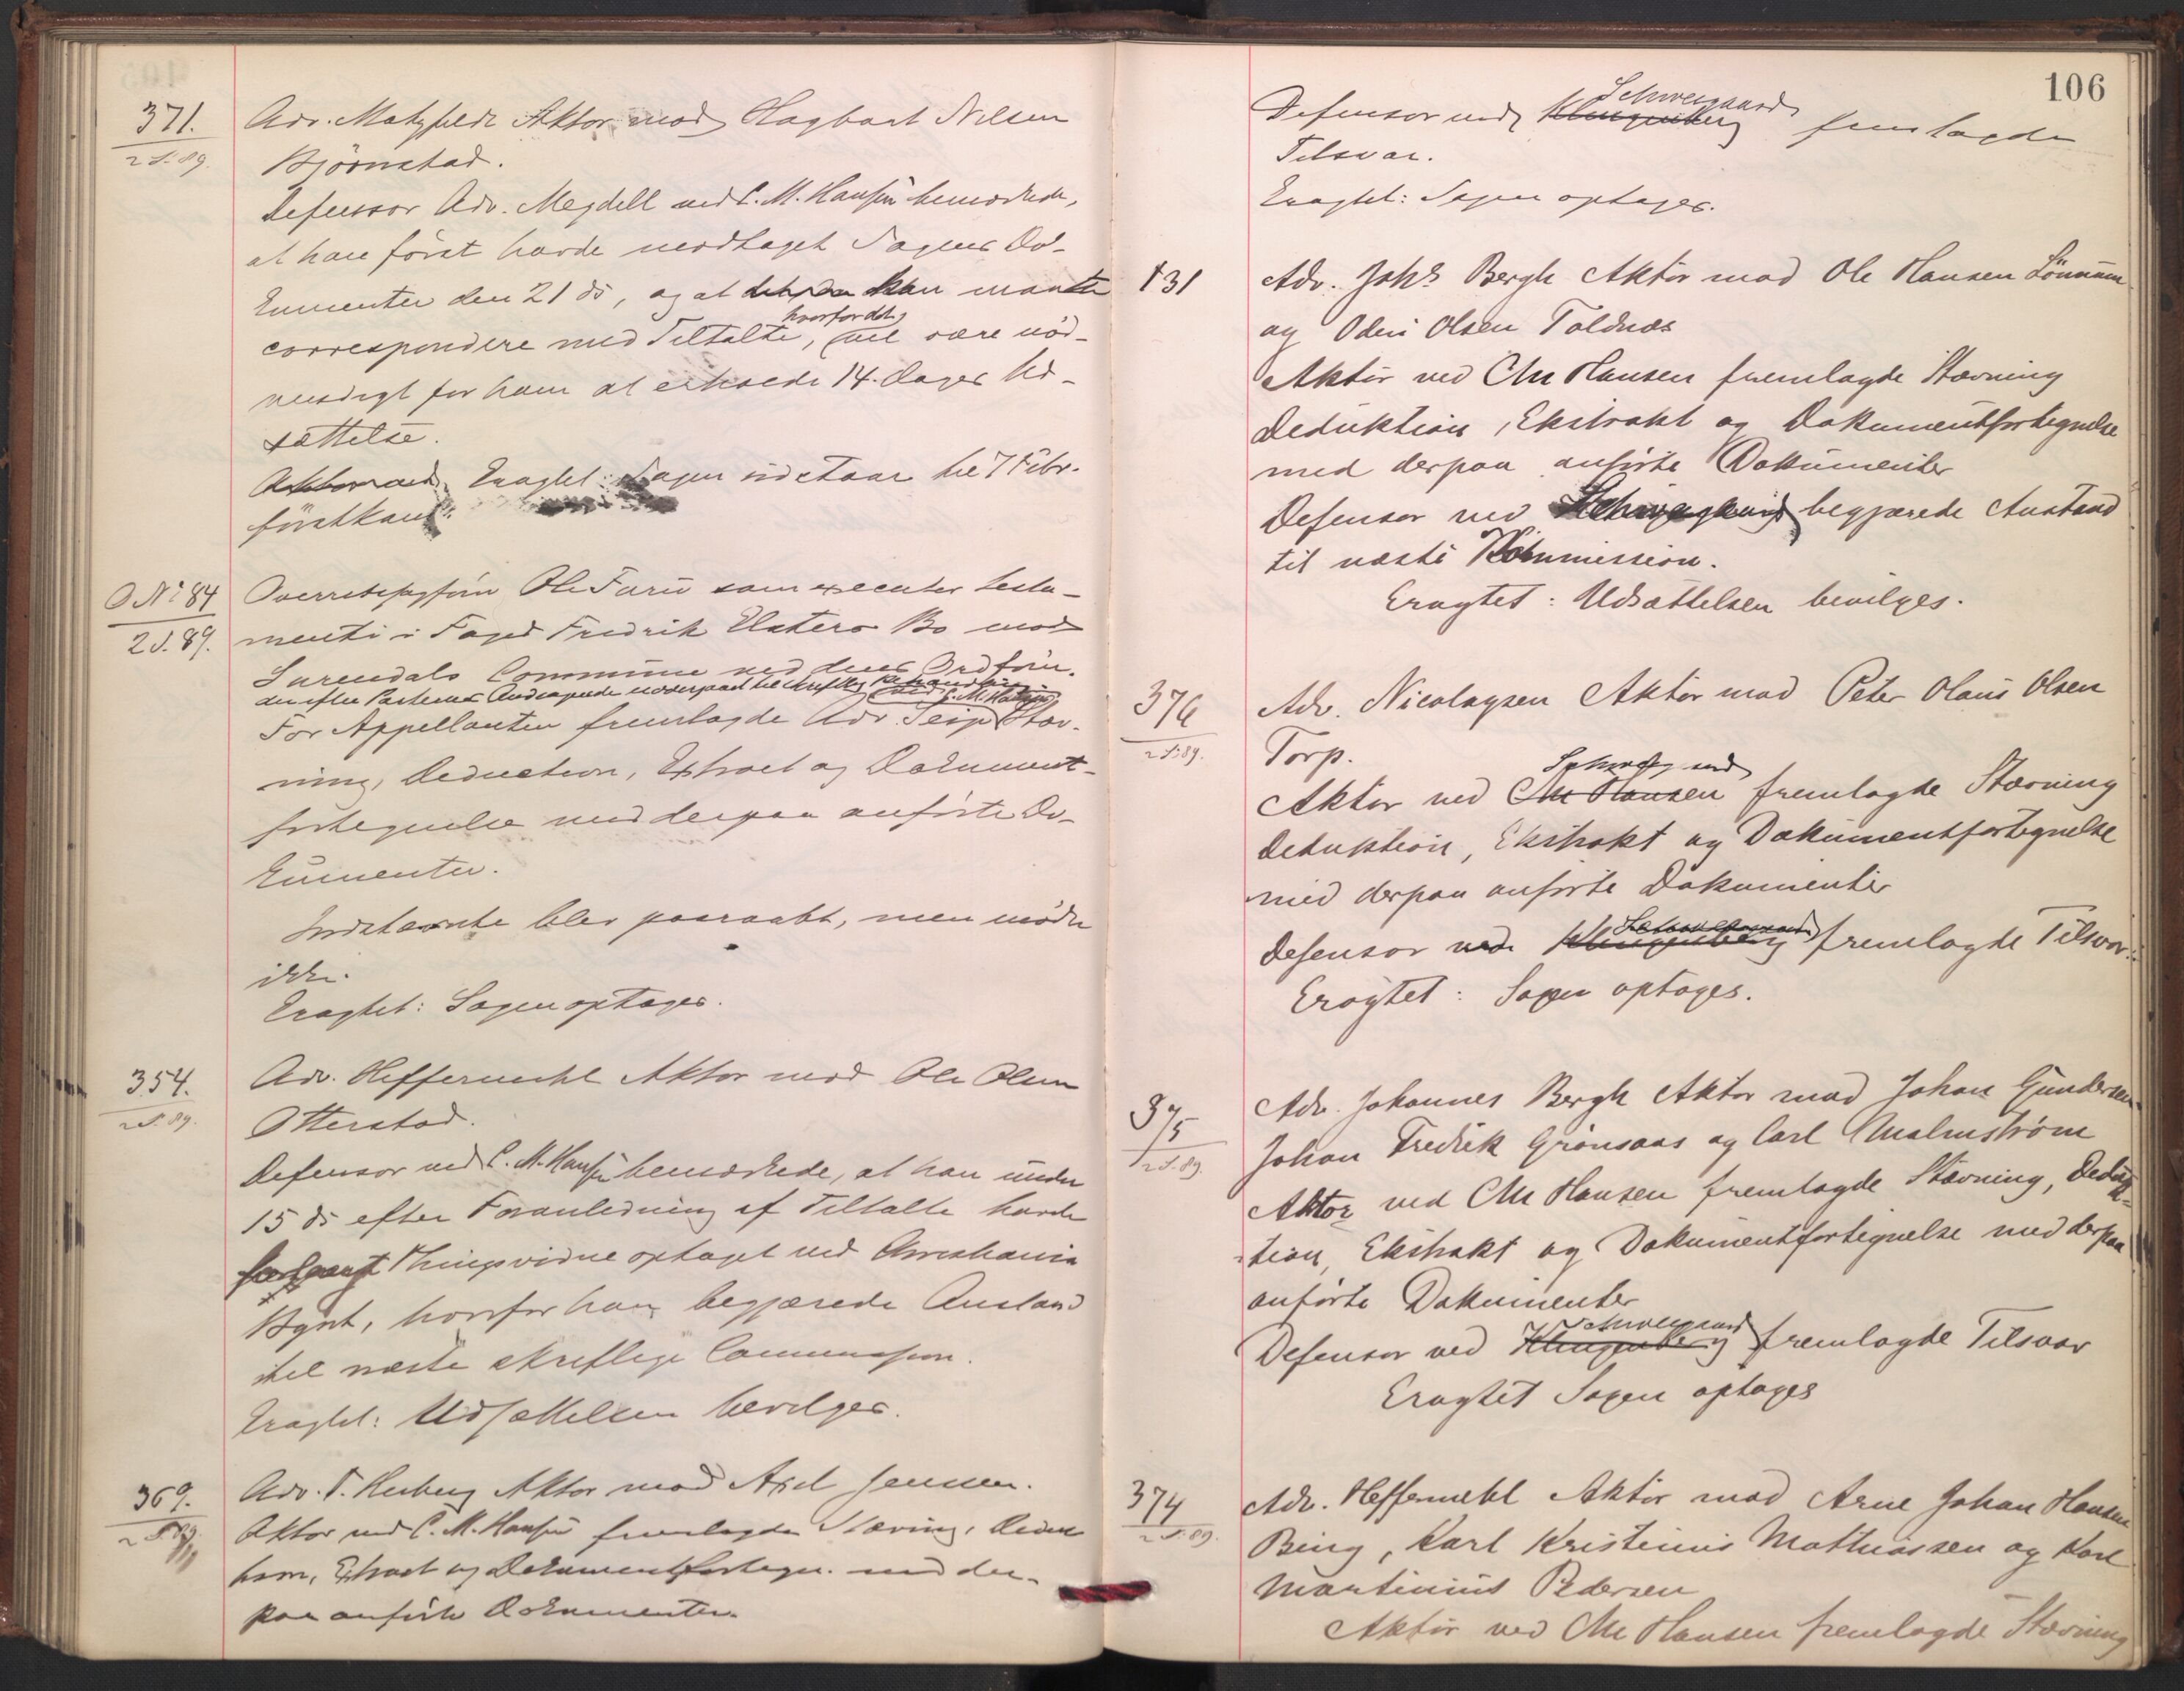 371.
2 S. 89.
Adv. Matzfeldt Aktor mod Hagbart Nilsen
Bjørnstad.
Defensor Adv. Megdell ved C. M. Hansen bemærkede,
at han først havde modtaget Sagens Do-
kumenter den 21 ds, og at han maatte
correspondere med Tiltalte, hvorfor det vil være nød-
vendigt for ham at erholde 14. Dages Ud-
sættelse.
Aktor ved Eragtet: Sagen udstaar til 7 Febr.
førstkom.
O No 84
2 S. 89.
Overretssagfører Ole Furu som executor testa-
menti i Foged Fredrik Bo mod
Surendals Commune ved dens Ordfører.
der efter Parternes Andragende udsat til skriftlig Behandling
For Appellanten fremlagde Adv. Seip ved C. M. Hansen Stæv-
ning, Deduction, Extract og Dokument-
fortegnelse med derpaa anførte Do-
kumenter.
Indstævnte blev paaraabt, men mødte
ikke.
Eragtet: Sagen optages.
354.
2 S. 89.
Adv. Heffermehl Aktor mod Ole Olsen
Otterstad.
Defensor ved C. M. Hansen bemærkede, at han under
15 ds efter Foranledning af Tiltalte havde
Thingsvidne optaget ved Christiania
Byret, hvorfor han begjærede Anstand
til næste skriftlige Commission.
Eragtet: Udsættelsen bevilges.
369.
2 S. 89.
Adv. T. Herberg Aktor mod Axel Jensen.
Aktor ved C. M. Hansen fremlagde Stævning, Deduc
tion, Extract og Dokumentfortegn. med der-
paa anførte Dokumenter.
106
Defensor ved Klingenberg Schweigaard fremlagde
Tilsvar.
Eragtet: Sagen optages.
131
Adv. Johs Bergh Aktor mod Ole Hansen Lönnum
og Odin Olsen Toldnæs
Aktor ved Chr Hansen fremlagde Stævning
Deduktion, Ekstrakt og Dokumentfortegnelse
med derpaa anførte Dokumenter
Defensor ved begjærede Anstand
til næste Kommission.
Eragtet: Udsættelsen bevilges.
376
2 S. 89.
Adv. Nicolaysen Aktor mod Peter Olaus Olsen
Torp.
Aktor ved Chr Hansen fremlagde Stævning
Deduktion, Ekstrakt og Dokumentfortegnelse
med derpaa anførte Dokumenter
Defensor ved Klingenberg Schweigaard fremlagde Tilsvar.
Eragtet: Sagen optages.
375
2 S. 89.
Adv. Johannes Bergh Aktor mod Johan Gundersen
Johan Fredrik Grønsaas og Carl Malmstrøm
Aktor ved Chr Hansen fremlagde Stævning, Deduk-
tion, Ekstrakt og Dokumentfortegnelse med derpaa
anførte Dokumenter
Defensor ved Klingenberg Schweigaard fremlagde Tilsvar
Eragtet Sagen optages
374
2 S. 89.
Adv. Heffermehl Aktor mod Arne Johan Hansen
Bing, Karl Kristinius Mathiassen og Karl
Martinius Pedersen
Aktor ved Chr Hansen fremlagde Stævning